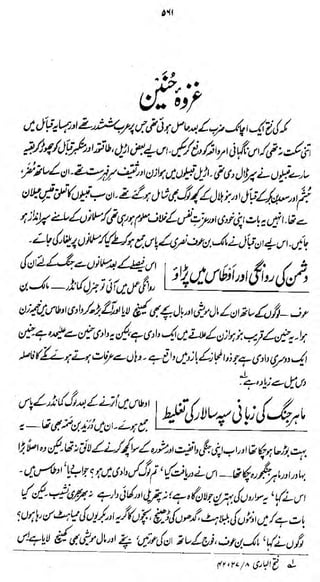 ۵۶۱
غزوۂ حنین
مکہ کی فتح ایک اچانک ضرب کے بعد حاصل ہوئی تھی جس پر عرب ششدر تھے اور ہمسایہ قبائل میں
اتنی سکت نہ تھی کہ اس ناگہانی امر واقعہ کو دفع کر سکیں۔ اس لیے بعض اڑیل، طاقتور اور متکبر قبائل کو چھوڑ کر بقیہ
سارے قبیلوں نے سپر ڈال دی تھی۔ اڑیل قبیلوں میں ہوازن اور ثقیف سرفہرست تھے۔ ان کے ساتھ مُضَر،
جُشَم اور سعد بن بکر کے قبائل اور بنو ہلال کے کچھ لوگ بھی شامل ہو گئے تھے۔ ان سب قبیلوں کا تعلق قیس عیلان
سے تھا۔ انہیں یہ بات اپنی خودی اور عزتِ نفس کے خلاف معلوم ہو رہی تھی کہ مسلمانوں کے سامنے سپر انداز ہو
جائیں۔ اس لیے ان قبائل نے مالک بن عوف نصری کے پاس جمع ہو کر طے کیا کہ مسلمانوں پر یلغار کی جائے۔
دشمن کی روانگی اور اَوطاس میں پڑاؤ
اس فیصلے کے بعد مسلمانوں سے جنگ کے لیے ان کی
روانگی عمل میں آئی تو جنرل کمانڈر ۔ مالک بن
عوف ۔ لوگوں کے ساتھ ان کے مال مویشی اور بال بچے بھی کھینچ لایا اور آگے بڑھ کر وادی اوطاس میں خیمہ زن
ہوا۔ یہ حنین کے قریب بنو ہوازن کے علاقے میں ایک وادی ہے لیکن یہ وادی حنین سے علیحدہ ہے۔ حنین
ایک دوسری وادی ہے جو ذوالمجاز کے بازو میں واقع ہے۔ وہاں سے عرفات ہوتے ہوئے مکے کا فاصلہ
دس میل سے زیادہ ہے۔
ماہر جنگ کی زبانی سپہ سالار کی تغلیط
اوطاس میں اُترنے کے بعد لوگ کمانڈر کے پاس
جمع ہوئے۔ ان میں دُرَید بن صمہ بھی تھا۔ یہ
بہت بوڑھا ہو چکا تھا اور اب اپنی جنگی واقفیت اور مشورہ کے سوا کچھ کرنے کے لائق نہ تھا۔ لیکن وہ اصلاً بڑا
بہادر اور ماہر جنگجو رہ چکا تھا۔ اس نے دریافت کیا، تم لوگ کس وادی میں ہو؟ جواب دیا، اوطاس میں۔
اس نے کہا، یہ سواروں کی بہترین جولان گاہ ہے، نہ پتھریلی اور کھائی دار ہے نہ بھربھری نشیب۔ لیکن کیا
بات ہے کہ میں اونٹوں کی بلبلاہٹ، گدھوں کی ڈھینچ، بچوں کا گریہ اور بکریوں کی ممیاہٹ سن رہا ہوں؟
لوگوں نے کہا، مالک بن عوف، فوج کے ساتھ ان کی عورتیں، بچے اور مال مویشی بھی کھینچ لایا ہے۔ اس
فتح الباری ۸/۲۷، ۴۲